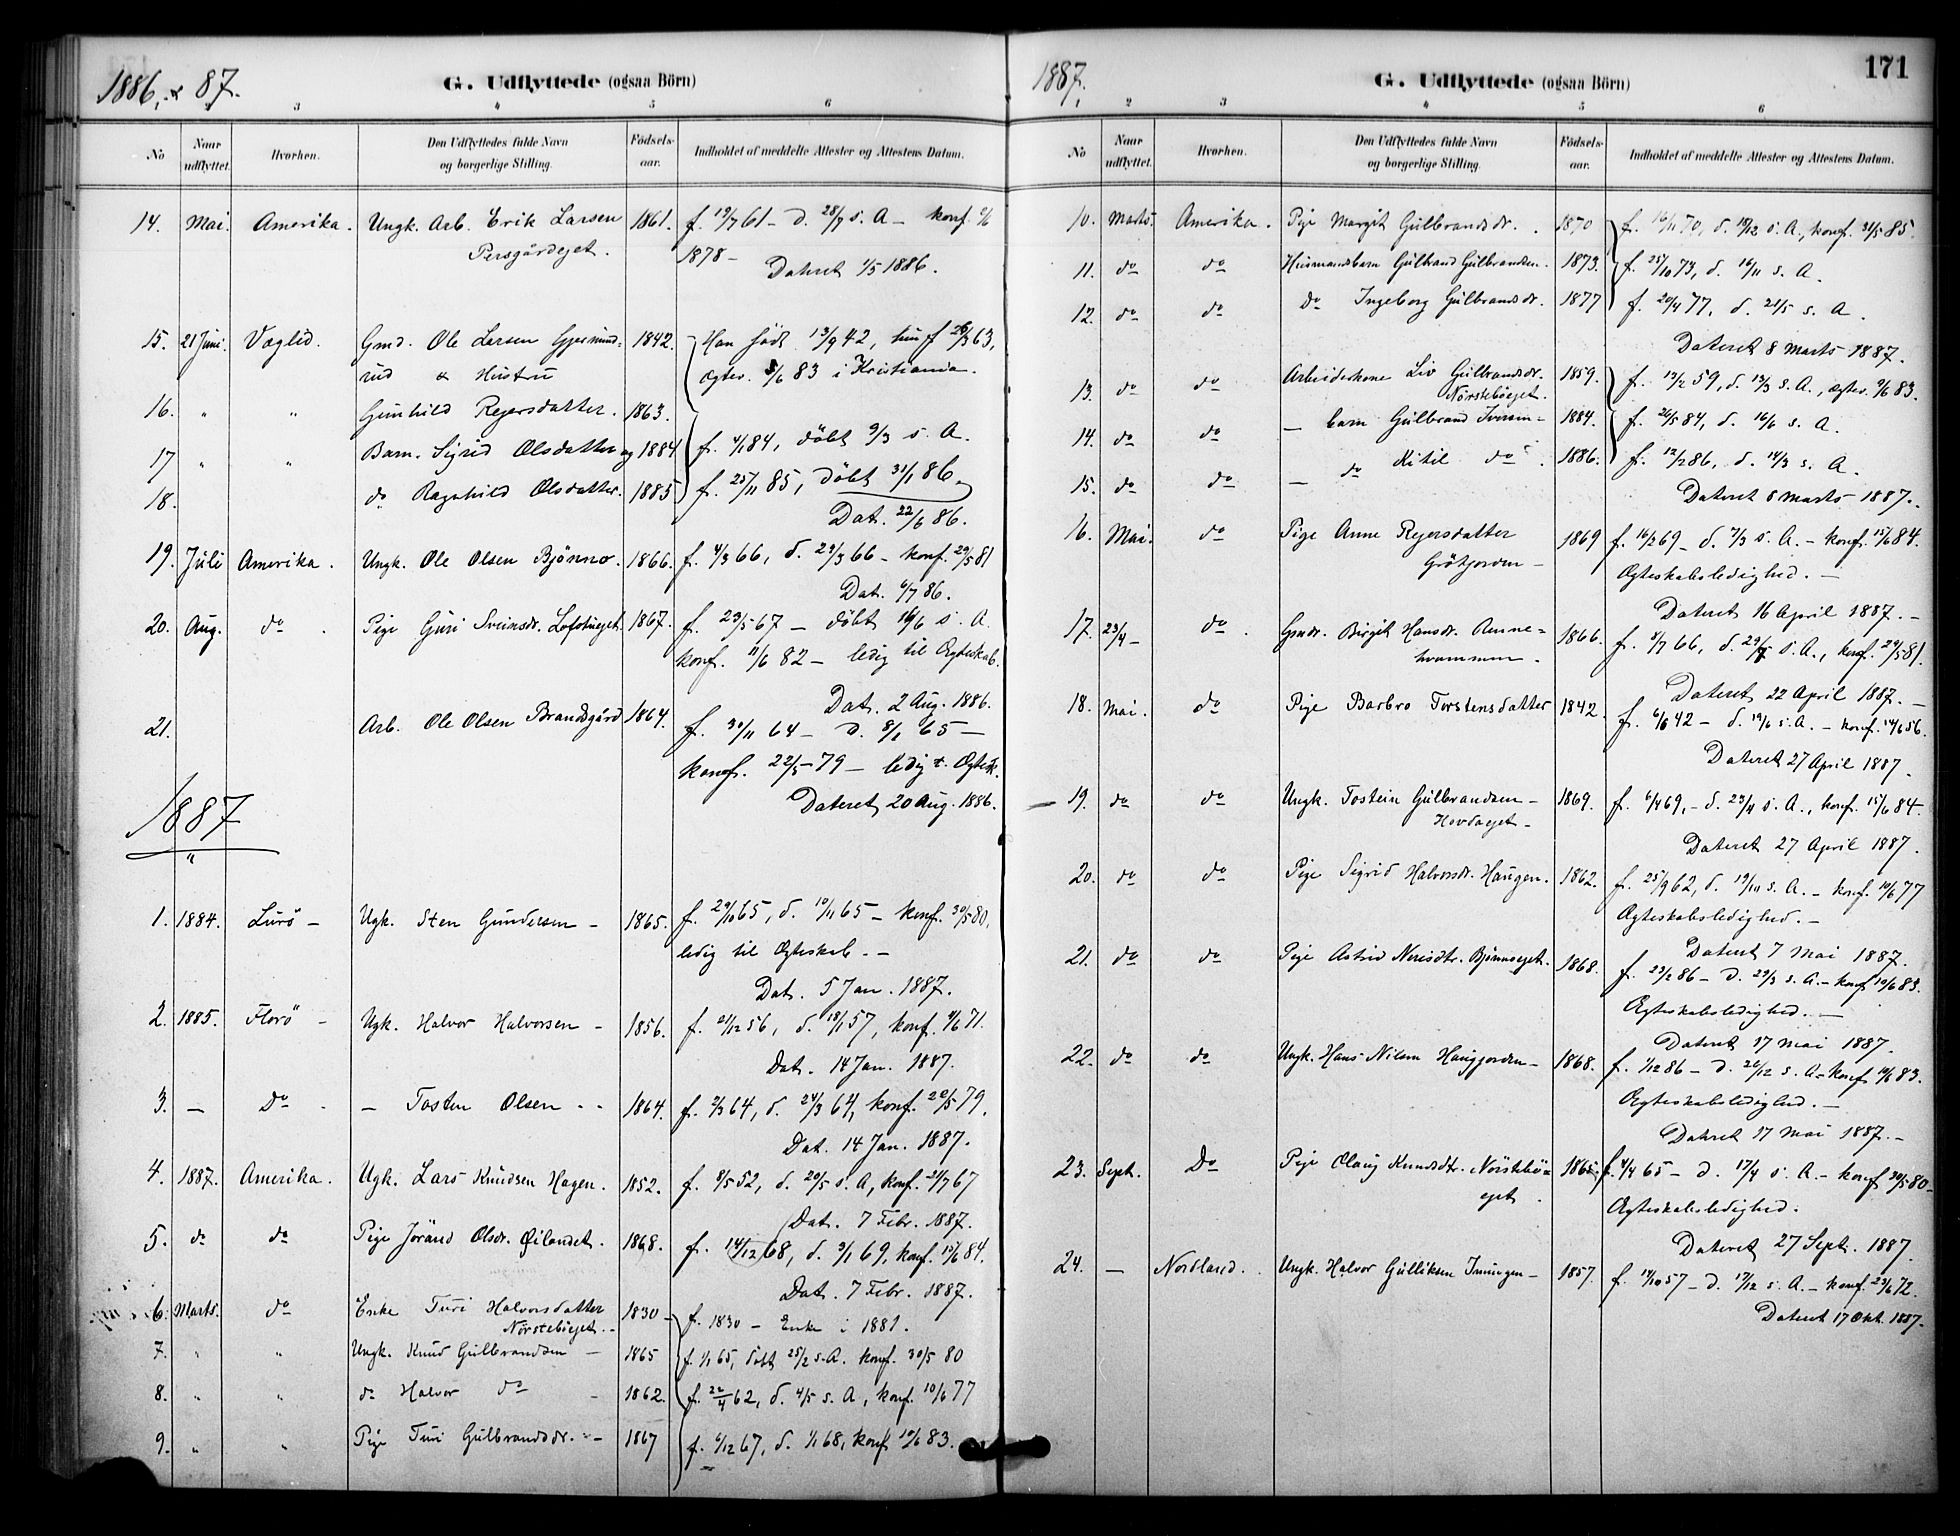 1886, & 87.
G. Udflyttede (ogsaa Börn)
3 4 5 6
No
Naar udflyttet.
Hvorhen.
Den Udflyttedes fulde Navn og borgerlige Stilling.
Födsels-aar.
Indholdet af meddelte Attester og Attestens Datum.
14. Mai. Amerika. Ungk. Arb. Erik Larsen 1861. f. 19/7 61 - d. 28/7 s. A - konf.
Persgårdeget. 1878 -
Dateret 1/5 1886.
15. 21 Juni. Vaglid. Gmd. Ole Larsen Gjesmund- 1842. Han født 13/9 42, hun f 26/3 63,
rud & Hustru ægtev. 3/6 83 i Kristiania.
16. " " Gunhild Reyersdatter. 1863.
17 " " Barn. Sigrid Olsdatter og 1884 f. 4/1 84, döbt 9/3 s. A.
18. do Ragnhild Olsdatter. 1885 f. 25/11 85, döbt 31/1 86.
Dat. 22/6 86.
19. Juli Amerika. Ungk. Ole Olsen Bjönno. 1866. f. 4/3 66, d. 29/3 66 - konf. 29/5 81
Dat. 6/7 86.
20. Aug. do. Pige Guri Sveinsdr. Loftsueget. 1867. f. 23/5 67 - döbt 16/6 s. A.
konf. 11/6 82 - ledig til Ægteskab.
Dat. 2 Aug. 1886.
21. Arb. Ole Olsen Brandsgård 1864. f. 30/11 64 - d. 8/1 65 -
konf. 22/5 - 79 - ledig t. Ægtesk.
Dateret 20 Aug. 1886.
1887
"
1. 1884. Lurö - Ugk. Sten Gundersen - 1865. f. 29/10 65, d. 10/11 65 - konf. 30/5 80,
ledig til Ægteskab. -
Dat. 5 Jan. 1887.
2. 1885. Florö - Ugk. Halvor Halvorsen - 1856. f. 21/12 56, d. 18/1 57, konf. 4/6 71.
Dat. 14 Jan. 1887.
3. - Do - - Tosten Olsen - - 1864. f. 2/3 64, d. 24/3 64, konf. 20/5 79.
Dat. 14 Jan. 1887.
4. 1887. Amerika. Ugk. Lars Knudsen Hagen. 1852. f. 8/5 52, d. 20/5 s. A, konf. 21/7 67
Dat. 7 Febr. 1887.
5. do do Pige Jörand Olsdr. Øilandet. 1868. f. 14/12 68, d. 3/1 69, konf. 15/6 84.
Dat. 7 Febr. 1887.
6. Marts. do Enke Turi Halvorsdatter 1830 - f. 1830 - Enke i 1881.
Nörstebøeget. -
7. " " Ungk. Knud Gulbrandsen - 1865 f. 1/1 65, döbt 25/2 s. A. konf. 30/5 80
8. " " do Halvor do - 1862. f. 22/4 62, d. 4/5 s. A, konf. 10/6 77
9. " " Pige Turi Gulbrandsdr. - 1867 f. 6/12 67, d. 1/1 68, konf 10/6 83.
1887.
G. Udflyttede (ogsaa Börn)
171
2 3 4 5 6
No
Naar udflyttet.
Hvorhen.
Den Udflyttedes fulde Navn og borgerlige Stilling.
Födsels-aar.
Indholdet af meddelte Attester og Attestens Datum.
10. Marts. Amerika. Pige Margit Gulbrandsdr. 1870 f. 16/11 70, d. 18/12 s. A., konf. 31/5 85.
11. do do Husmandsbarn Gulbrand Gulbrandsen. 1873. f. 25/10 73, d. 16/11 s. A.
12. do do do Ingeborg Gulbrandsdr. 1877 f. 20/4 77, d. 21/5 s. A.
Dateret 8 Marts 1887.
13. do do Arbeiderkone Liv Gulbrandsdr. 1859. f. 13/2 59, d. 13/3 s. A., ægtev. 9/6 83.
Nörstebøeget.
14. do do - barn Gulbrand Iversen - 1884. f. 26/5 84, d. 16/6 s. A.
15. do do - do Kitil do. 1886. f. 12/2 86, d. 14/3 s. A.
Dateret 8 Marts 1887.
16. Mai. do Pige Anne Reyersdatter 1869 f. 16/2 69 - d. 7/3 s. A. - konf. 15/6 84.
Grötjorden - Ægteskabsledighed. -
Dateret 16 April 1887. -
17. 23/4 - do. Gmdr. Birgit Hansdr. Renne- 1866. f. 8/7 66, d. 29/7 s. A., konf. 29/5 81.
hvammen.
Dateret 22 April 1887. -
18. Mai. do Pige Barbro Torstensdatter 1842. f. 6/6 42 - d. 19/6 s. A. - konf. 14/6 56.
Dateret 27 April 1887.
19. do do Ungk. Tostein Gulbrandsen - 1869. f. 6/4 69, - d. 23/4 s. A., konf. 15/6 84.
Hovdaeget -
Dateret 27 April 1887.
20. do do Pige Sigrid Halvorsdr. Haugen. 1862. f. 25/9 62, d. 19/11 s. A. - konf. 10/6 77
Ægteskabsledighed. -
Dateret 7 Mai 1887.
21. do do Pige Astrid Nerisdtr. Bjönnseget. 1868. f. 23/2 86 - d. 29/3 s. A. - konf 10/6 83.
Ægteskabsledighed. -
Dateret 17 Mai 1887.
22. do do Ungk. Hans Nilsen Haugjorden - 1868. f. 1/12 86 - d. 26/12 s. A - konf 10/6 83.
Ægteskabsledighed. -
Dateret 17 Mai 1887. -
23. Sept. Do Pige Olaug Knudsdtr. Nörstebö- 1865 f. 4/4 65 - d. 17/4 s. A. - konf 30/5 80 -
eget. Ægteskabsledighed.
Dateret 27 Sept. 1887
24. - Nordland. Ungk. Halvor Gulliksen Imingen - 1857. f. 14/10 57 - d. 17/12 s. A. - konf. 23/6 72.
Dateret 17 Okt. 1887.